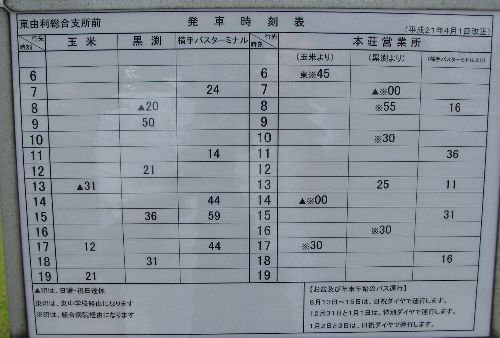 東由利総合支所前 発車時刻表 (平成21年4月1日改正)
行先 時刻 玉米 黒渕 横手バスターミナル 行先 時刻 本荘営業所
(玉米より) (黒渕より) (横手バスターミナルより)
6 6 東※45
7 24 7 ▲※00
8 ▲20 8 ※55 16
9 50 9
10 10 ※30
11 14 11 36
12 21 12
13 ▲31 13 25 11
14 44 14 ▲※00
15 36 59 15 31
16 16 ※30
17 12 44 17 ※30
18 31 18 16
19 21 19
▲印は、日曜・祝日運休
東印は、東中学校経由になります
※印は、総合病院経由になります
【お盆及び年末年始のバス運行】
8月13日～15日は、日祝ダイヤで運行します。
12月31日と1月1日は、特別ダイヤで運行します。
1月2日と3日は、日祝ダイヤで運行します。